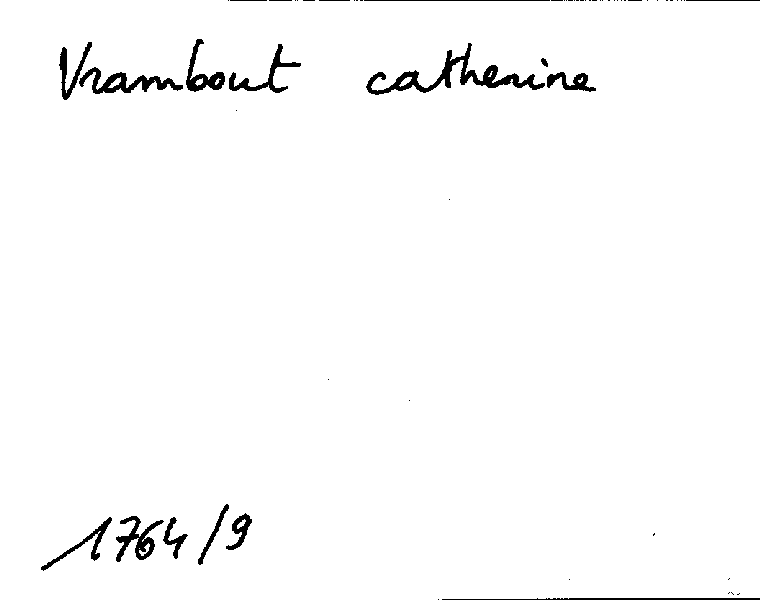 Vrambout catherine
1764/9